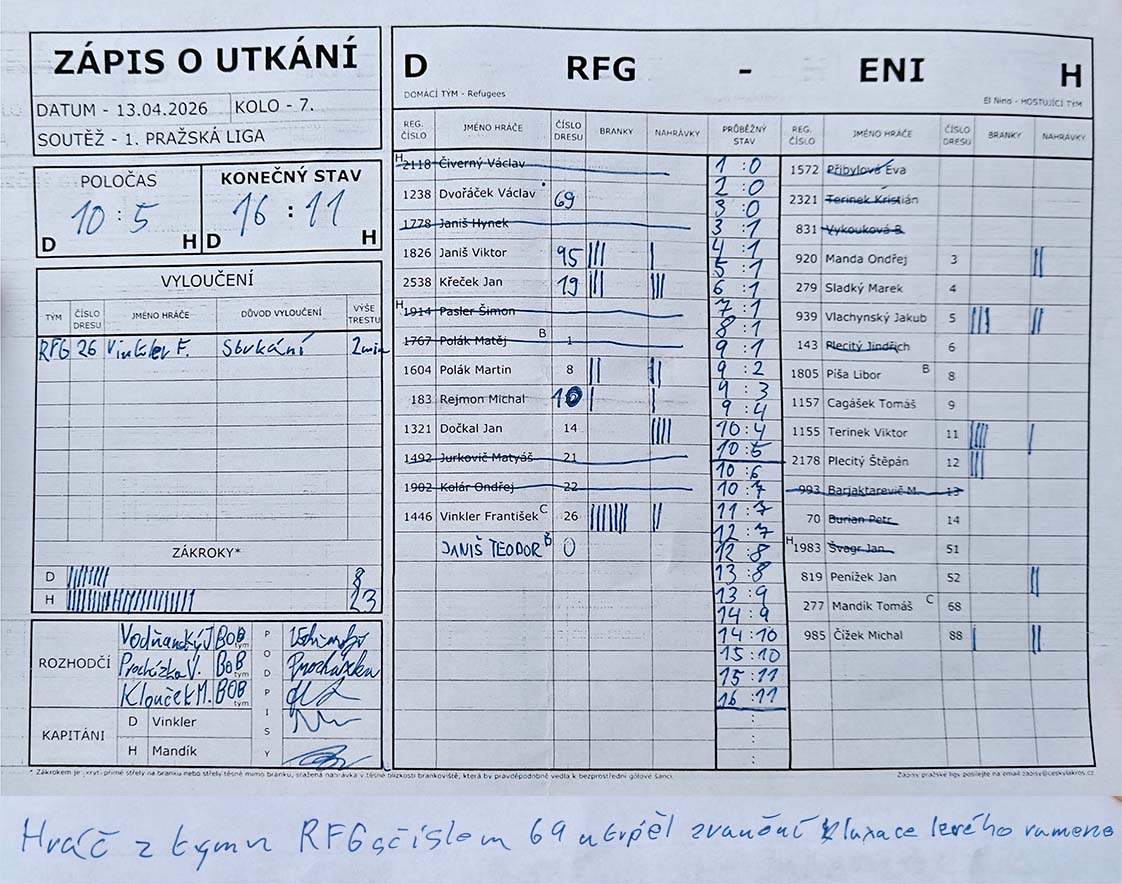 ZÁPIS O UTKÁNÍ
DATUM - 13.04.2026 KOLO - 7.
SOUTĚŽ - 1. PRAŽSKÁ LIGA
POLOČAS KONEČNÝ STAV
10 : 5 16 : 11
D H D H
VYLOUČENÍ
TÝM ČÍSLO DRESU JMÉNO HRÁČE DŮVOD VYLOUČENÍ VÝŠE TRESTU
RFG 26 Vinkler F. 2min
ZÁKROKY*
D 8
H 23
ROZHODČÍ
Vodňanský J. BOB tým
Procházka V. BOB tým Procházka
Klouček M. BOB tým
PODPISY
KAPITÁNI
D Vinkler
H Mandík
D RFG - ENI H
DOMÁCÍ TÝM - Refugees El Nino - HOSTUJÍCÍ TÝM
REG. ČÍSLO JMÉNO HRÁČE ČÍSLO DRESU BRANKY NAHRÁVKY
H 2118 Čiverný Václav
1238 Dvořáček Václav 69
1778 Janiš Hynek
1826 Janiš Viktor 95
2538 Křeček Jan 19
H 1914 Pasler Šimon
1767 Polák Matěj B 1
1604 Polák Martin 8
183 Rejmon Michal 10
1321 Dočkal Jan 14
1492 Jurkovič Matyáš 21
1902 Kolár Ondřej 22
1446 Vinkler František C 26
JANIŠ TEODOR B 0
PRŮBĚŽNÝ STAV
1 : 0
2 : 0
3 : 0
3 : 1
4 : 1
5 : 1
6 : 1
7 : 1
8 : 1
9 : 1
9 : 2
9 : 3
9 : 4
10 : 4
10 : 5
10 : 6
10 : 7
11 : 7
12 : 7
12 : 8
13 : 8
13 : 9
14 : 9
14 : 10
15 : 10
15 : 11
16 : 11
REG. ČÍSLO JMÉNO HRÁČE ČÍSLO DRESU BRANKY NAHRÁVKY
1572 Přibylová Eva
2321 Terinek Kristián
831 Vykouková B.
920 Manda Ondřej 3
279 Sladký Marek 4
939 Vlachynský Jakub 5
143 Plecitý Jindřich 6
1805 Píša Libor B 8
1157 Cagášek Tomáš 9
1155 Terinek Viktor 11
2178 Plecitý Štěpán 12
993 Barjaktarevič M. 13
70 Burian Petr 14
H 1983 Švagr Jan 51
819 Penížek Jan 52
277 Mandík Tomáš C 68
985 Čížek Michal 88
* Zákrokem je krytí přímé střely na branku nebo střely těsně mimo branku, sražená nahrávka v těsné blízkosti brankoviště, která by pravděpodobně vedla k bezprostřední gólové šanci.
Zápisy pražské ligy posílejte na email zapisy@ceskylakros.cz
Hráč z tymu RFG s číslem 69 utrpěl zranění luxace levého ramene